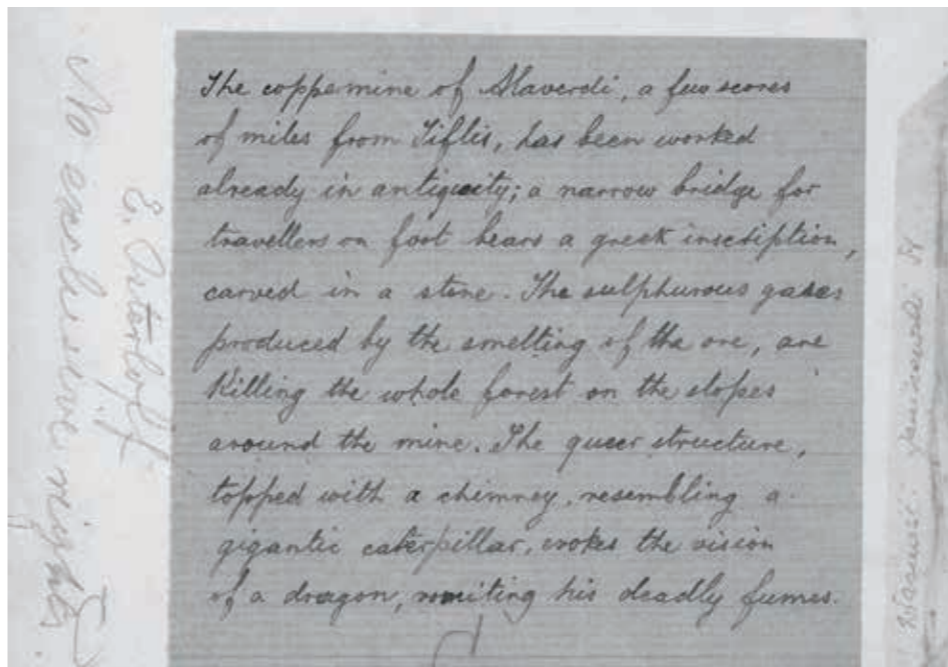 The coppermine of Alaverdi, a few scores
of miles from Tiflis, has been worked
already in antiquity; a narrow bridge for
travellers on foot bears a greek inscription,
carved in a stone. The sulphurous gases
produced by the smelting of the ore, are
Killing the whole forest on the slopes
around the mine. The queer structure,
topped with a chimney, resembling a
gigantic caterpillar, evokes the vision
of a dragon, vomiting his deadly fumes.
No exclusive rights.
E.